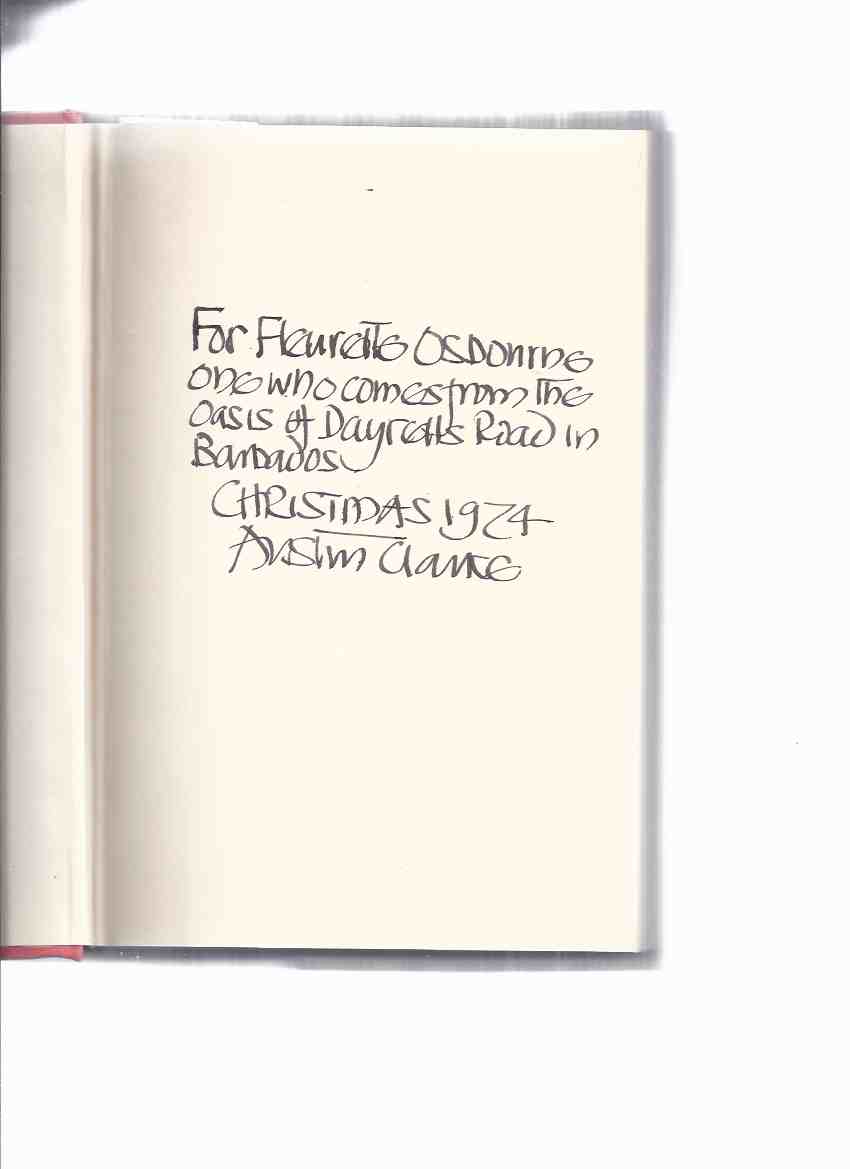 For Fleurette Osbourne
one who comes from the
Oasis of Dayrells Road in
Barbados
CHRISTMAS 1974
Austin Clarke